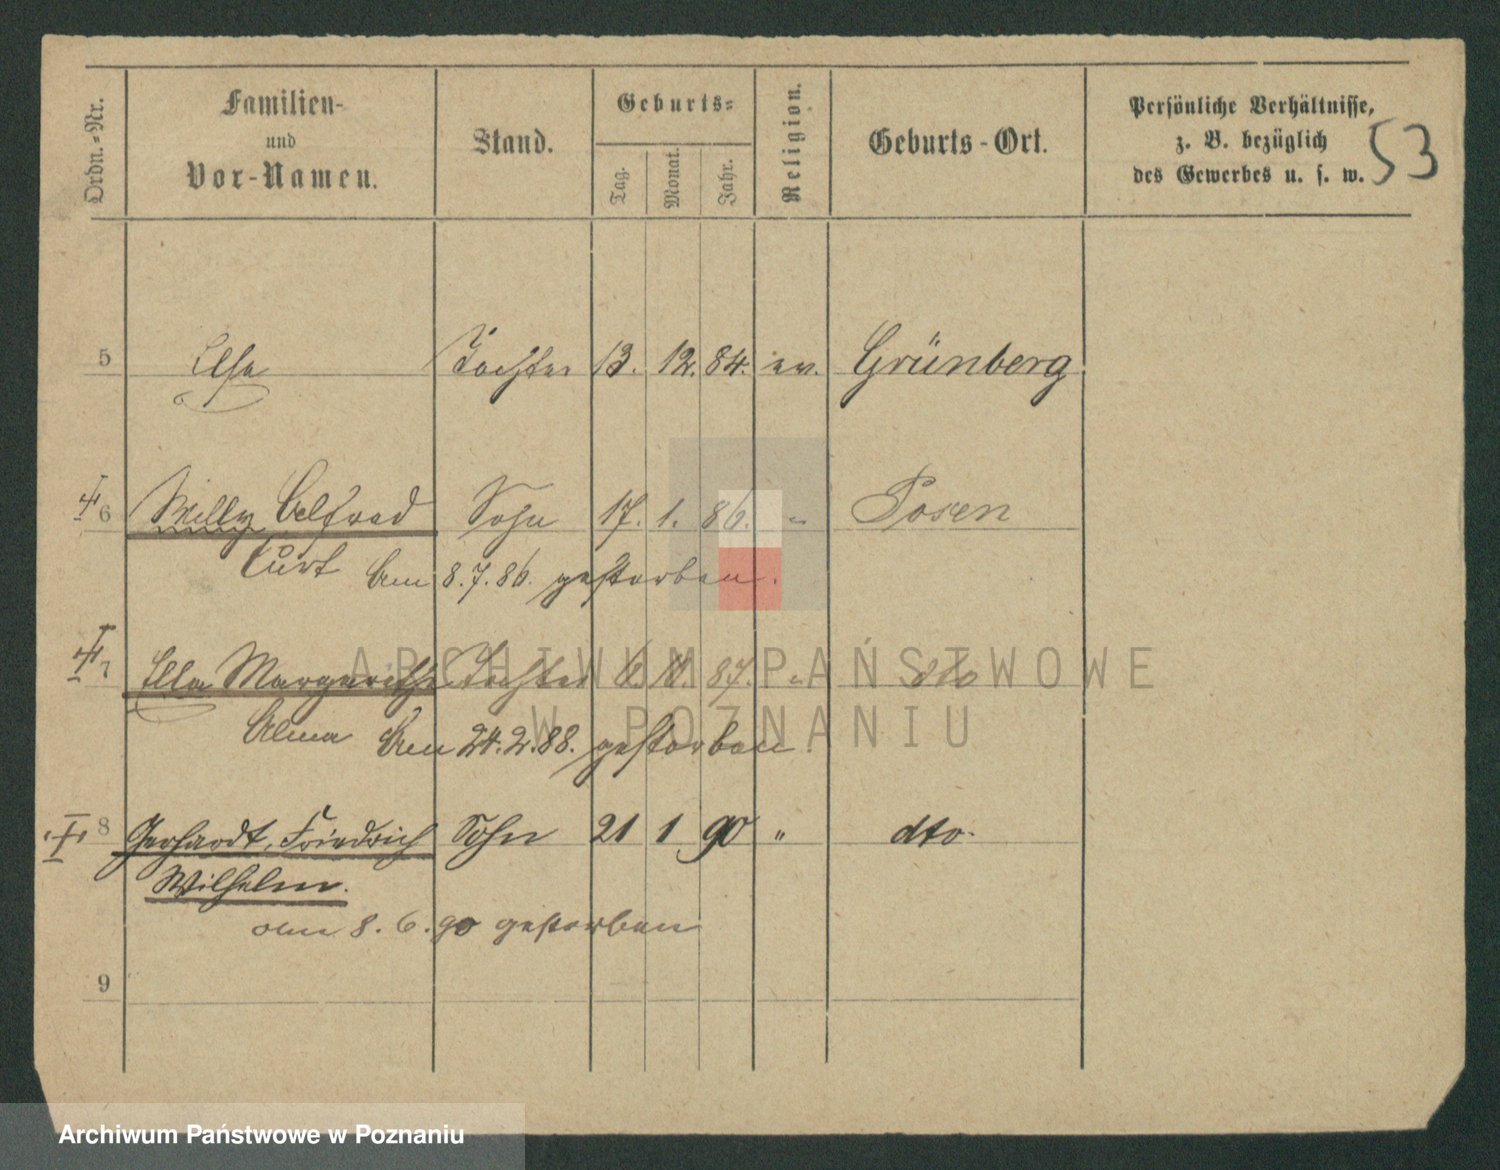 Ordn.-Nr.
Familien-
und
Vor-Namen.
Stand.
Geburts-
Tag.
Monat.
Jahr.
Religion.
Geburts-Ort.
Persönliche Verhältnisse,
z. B. bezüglich
des Gewerbes u. s. w.
53
5 Else Tochter 13. 12. 84. ev. Grünberg.
6 Willy Alfred Sohn 17. 1. 86. " Posen
Curt Am 8.7.86. gestorben.
7 Ella Margarethe Tochter 11. 87. " dto
Alma Am 24.2.88. gestorben.
8 Gerhardt, Friedrich Sohn 21 1 90 " dto.
Wilhelm.
am 8.6.90 gestorben
9
ARCHIWUM PAŃSTWOWE
W POZNANIU
Archiwum Państwowe w Poznaniu